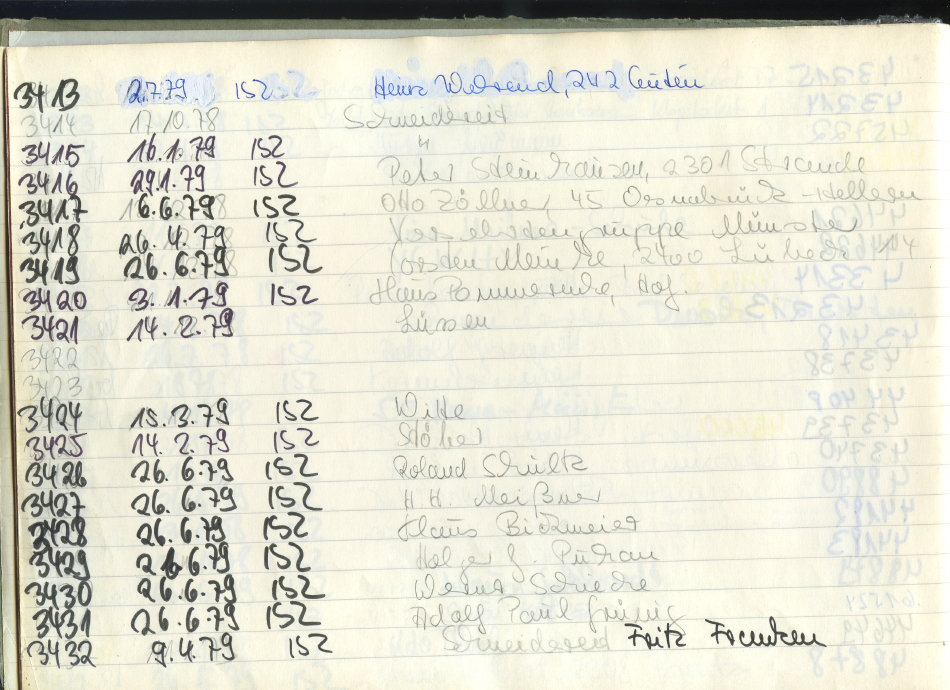 3413 2.7.79 152 Heinz 242
3414 17.10.78 Schneidereit
3415 16.1.79 152 "
3416 29.1.79 152 Peter Steinhausen, 2301 Strande
3417 6.6.79 152 Otto Zöllner, 45 Osnabrück - Hellern
3418 26.4.79 152 Münster
3419 26.6.79 152 2400 Lübeck 14
3420 3.1.79 152 Hans Pommerenke, Hof.
3421 14.2.79 Lüssen
3422
3423
3424 15.3.79 152 Witte
3425 14.2.79 152 Stöber
3426 26.6.79 152 Roland Schultz
3427 26.6.79 152 H.H. Meißner
3428 26.6.79 152 Klaus Birkmeier
3429 26.6.79 152 Holger J.
3430 26.6.79 152 Werner
3431 26.6.79 152 Adolf Paul
3432 9.4.79 152 Schneidereit Fritz Frenken